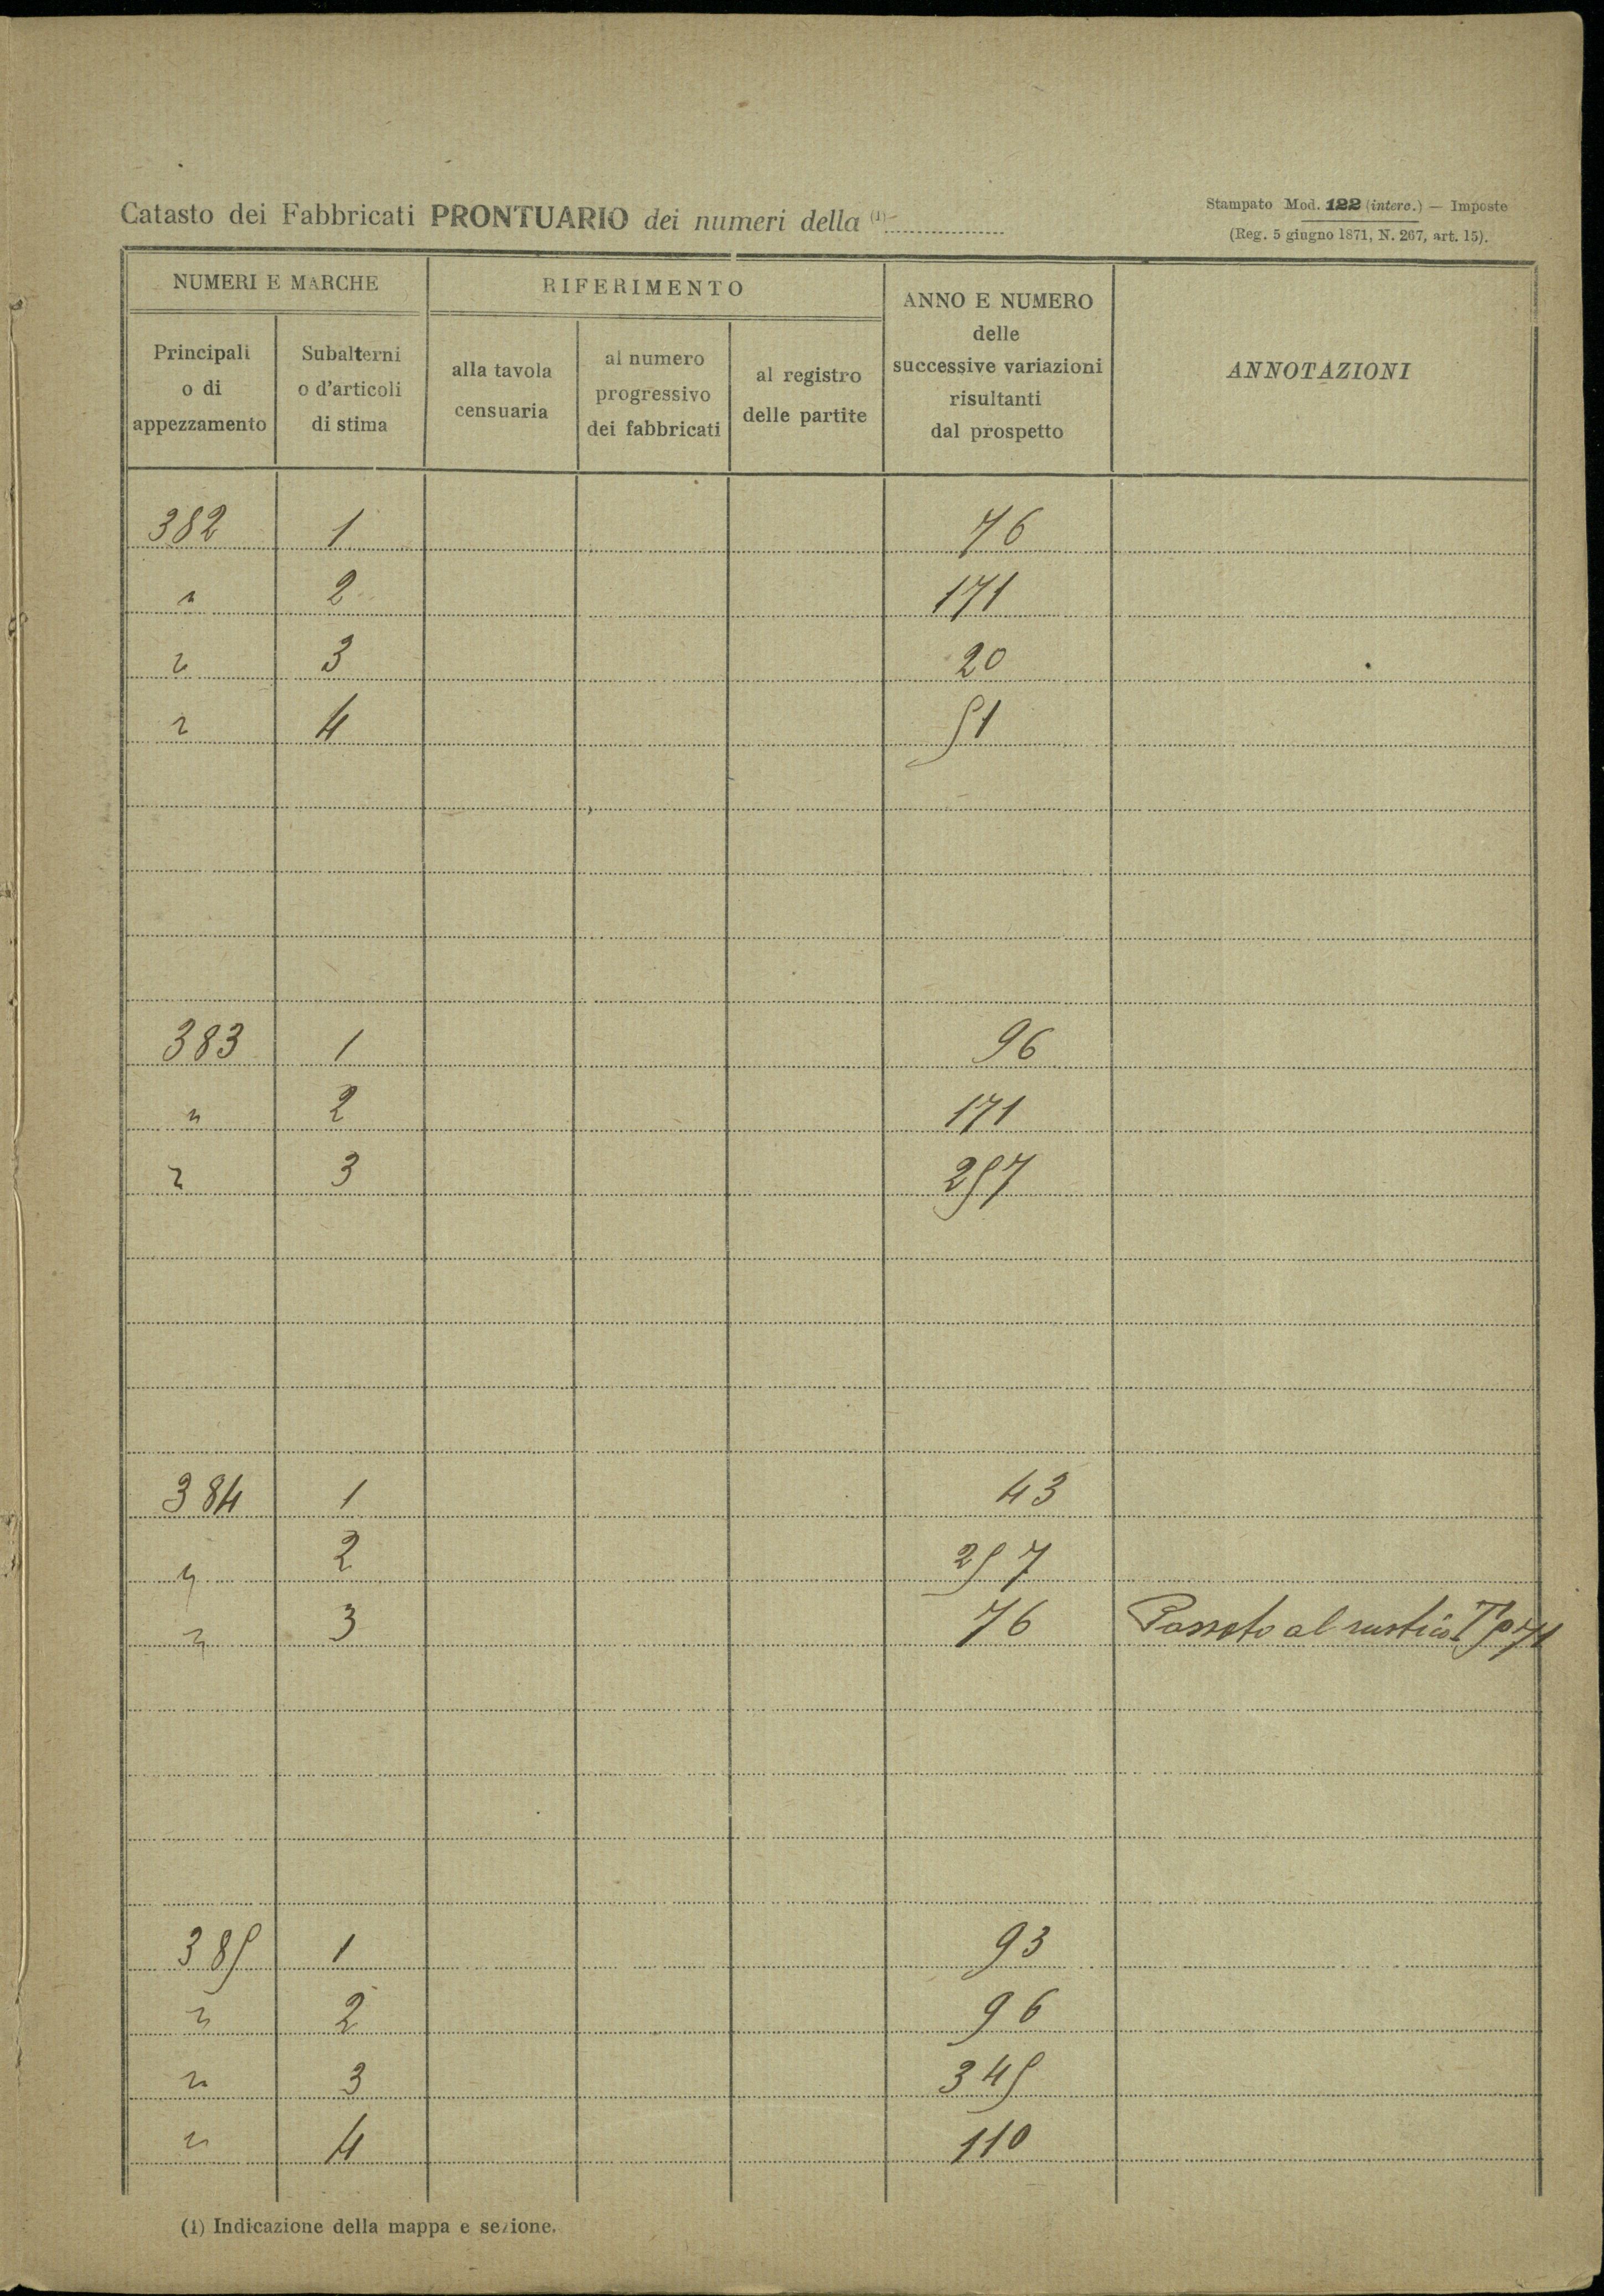 Catasto dei Fabbricati PRONTUARIO dei numeri della (1)
Stampato Mod. 122 (interc.) — Imposte
(Reg. 5 giugno 1871, N. 267, art. 15).
NUMERI E MARCHE
RIFERIMENTO
ANNO E NUMERO
delle
successive variazioni
risultanti
dal prospetto
ANNOTAZIONI
Principali
o di
appezzamento
Subalterni
o d'articoli
di stima
alla tavola
censuaria
al numero
progressivo
dei fabbricati
al registro
delle partite
382 1 76
" 2 171
" 3 20
" 4 51
383 1 96
" 2 171
" 3 257
384 1 43
" 2 257
" 3 76 Passato al rustico
385 1 93
" 2 96
" 3 345
" 4 110
(1) Indicazione della mappa e sezione.